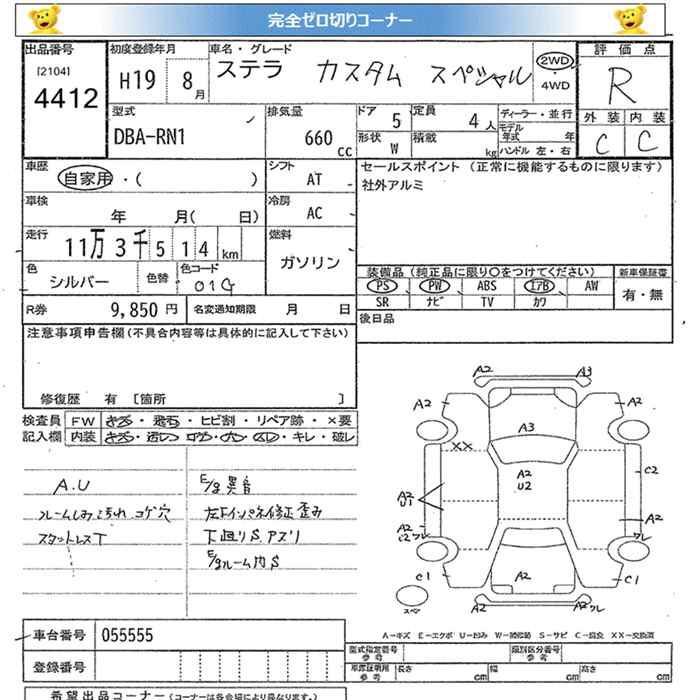 完全ゼロ切りコーナー
出品番号 初度登録年月 車名・グレード 評価点
[2104] 4412 H19 8月 ステラ カスタム スペシャル 2WD・4WD R
型式 排気量 ドア 定員 ディーラー・並行 外装 内装
DBA-RN1 660cc 5 4人 モデル年式 年 C C
形状 W 積載 kg ハンドル 左・右
車歴 シフト セールスポイント (正常に機能するものに限ります)
自家用・( ) AT 社外アルミ
車検 年 月(日) 冷房 AC
走行 11万3千514km 燃料 ガソリン
色 シルバー 色替 色コード 01G
装備品 (純正品に限り○をつけてください) 新車保証書
PS PW ABS エアB AW 有・無
SR ナビ TV カワ
R券 9,850円 名変通知期限 月 日 後日品
注意事項申告欄(不具合内容等は具体的に記入して下さい)
修復歴 有 [箇所 ]
検査員 FW キズ・飛石・ヒビ割・リペア跡・×要
記入欄 内装 ・キレ・破レ
A.U
E/g異音
ルームしみ汚れ コゲ穴
修正歪み
スタットレスT
下廻りS
E/gルーム内S
A2 A3
A2 A2
A3
XX
A2
U2
C2
A2
U1
A2
A2
C2 ワレ
ワレ
C1 A2 C1
スペア
A2 A2ワレ
A-キズ E-エクボ U-凹み S-サビ XX-交換済
車台番号 055555
型式指定番号 参考 類別区分番号 参考
登録番号
車庫証明用 参考 長さ cm 幅 cm 高さ cm
希望出品コーナー (コーナーは各会場により異なります。)